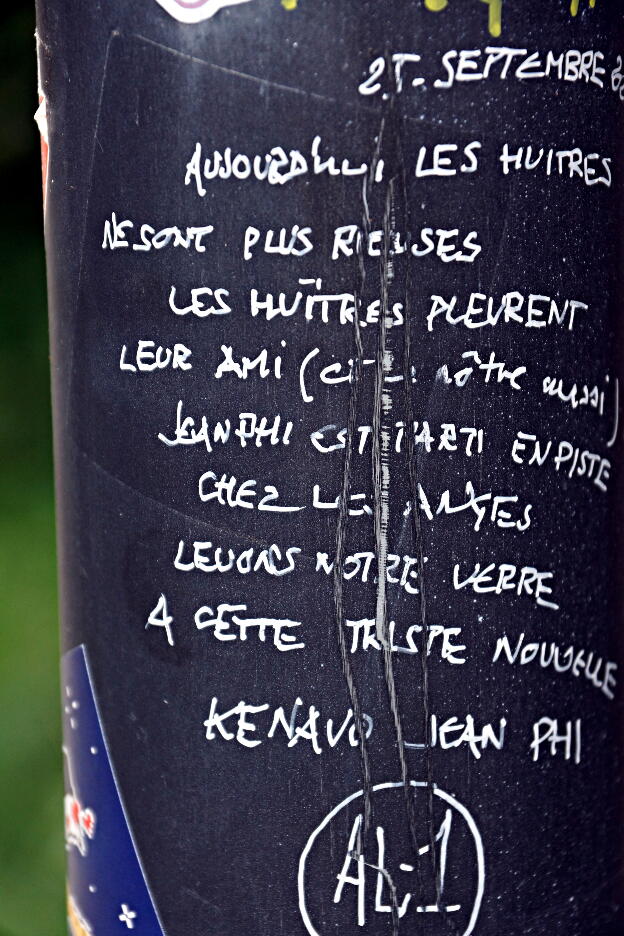 SEPTEMBRE
AUJOURD'HUI, LES HUITRES
NE SONT PLUS RIEUSES
LES HUÎTRES PLEURENT
LEUR AMI ( nôtre aussi)
JEAN PHI EST PARTI EN PISTE
CHEZ LES ANGES
LEVONS NOTRE VERRE
A CETTE TRISTE NOUVELLE
KENAVO JEAN PHI